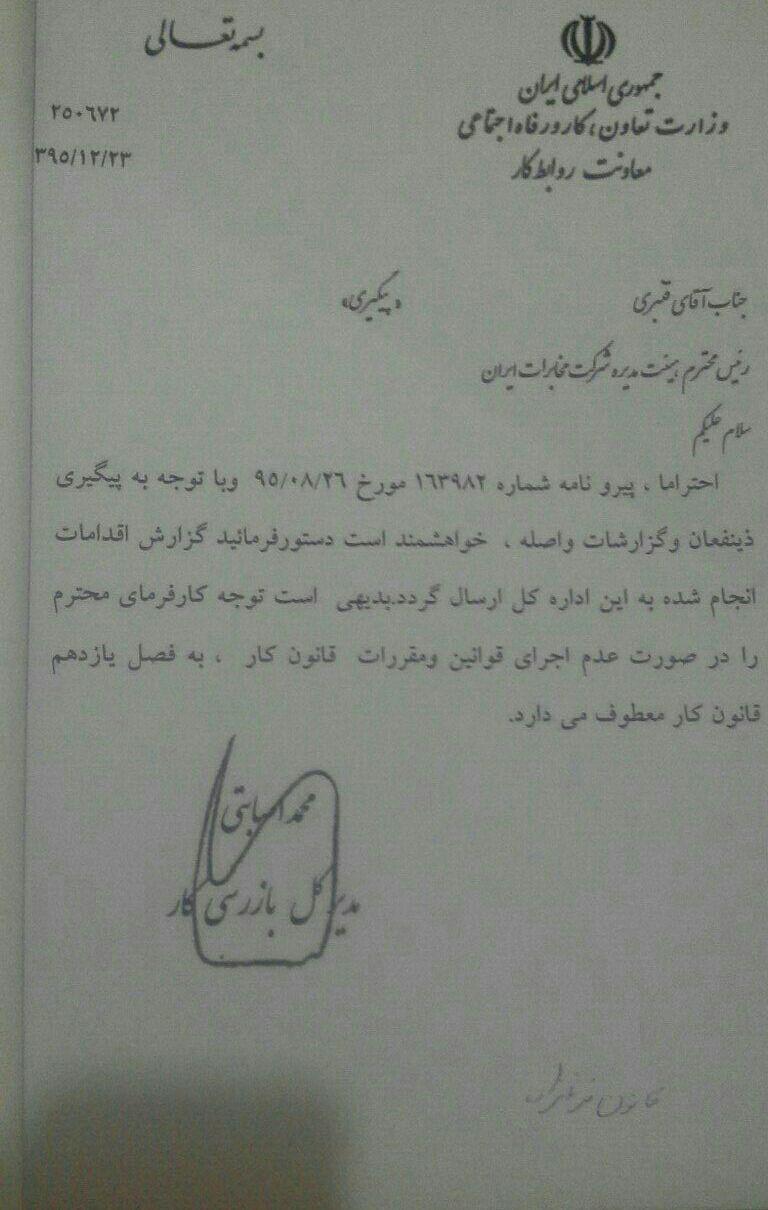 بسمه تعالی
جمهوری اسلامی ایران
وزارت تعاون، کار و رفاه اجتماعی
معاونت روابط کار
۲۵۰۶۷۲
۳۹۵/۱۲/۲۳
جناب آقای قنبری «پیگیری»
رئیس محترم هیئت مدیره شرکت مخابرات ایران
سلام علیکم
احتراما ، پیرو نامه شماره ۱۶۳۹۸۲ مورخ ۹۵/۰۸/۲۶ وبا توجه به پیگیری
ذینفعان وگزارشات واصله ، خواهشمند است دستورفرمائید گزارش اقدامات
انجام شده به این اداره کل ارسال گردد.بدیهی است توجه کارفرمای محترم
را در صورت عدم اجرای قوانین ومقررات قانون کار ، به فصل یازدهم
قانون کار معطوف می دارد.
محمد
مدیر کل بازرسی کار
قانون